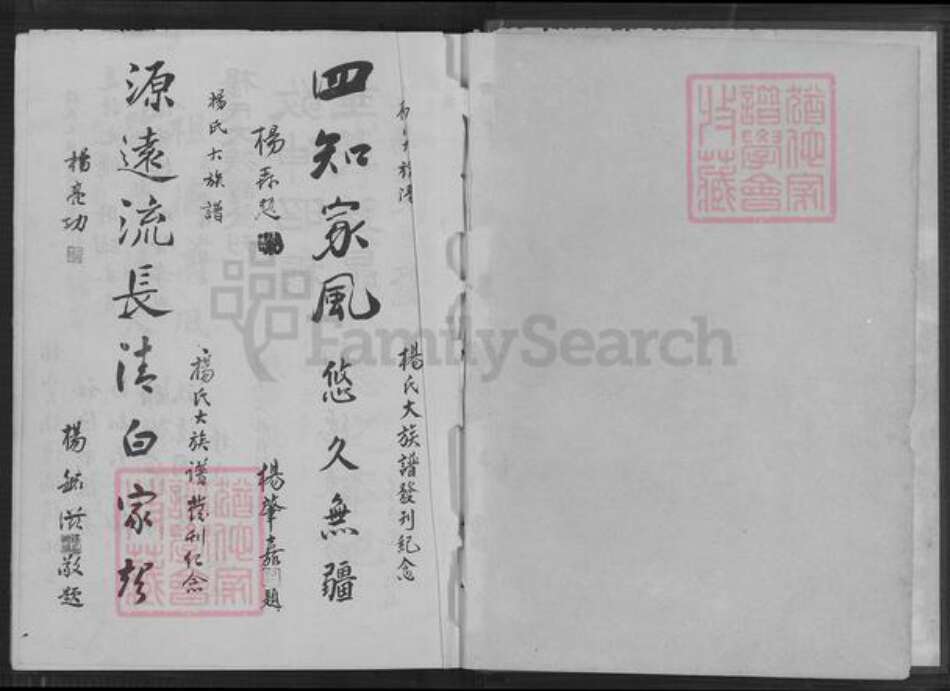 楊氏大族譜發刊紀念
四知家風
悠久無疆
楊森題
楊肇嘉題
楊氏大族譜
楊氏大族譜發刊紀念
源遠流長
清白家
楊亮功
敬題
猶他家
譜學會
收藏
猶他家
譜學會
收藏
FamilySearch